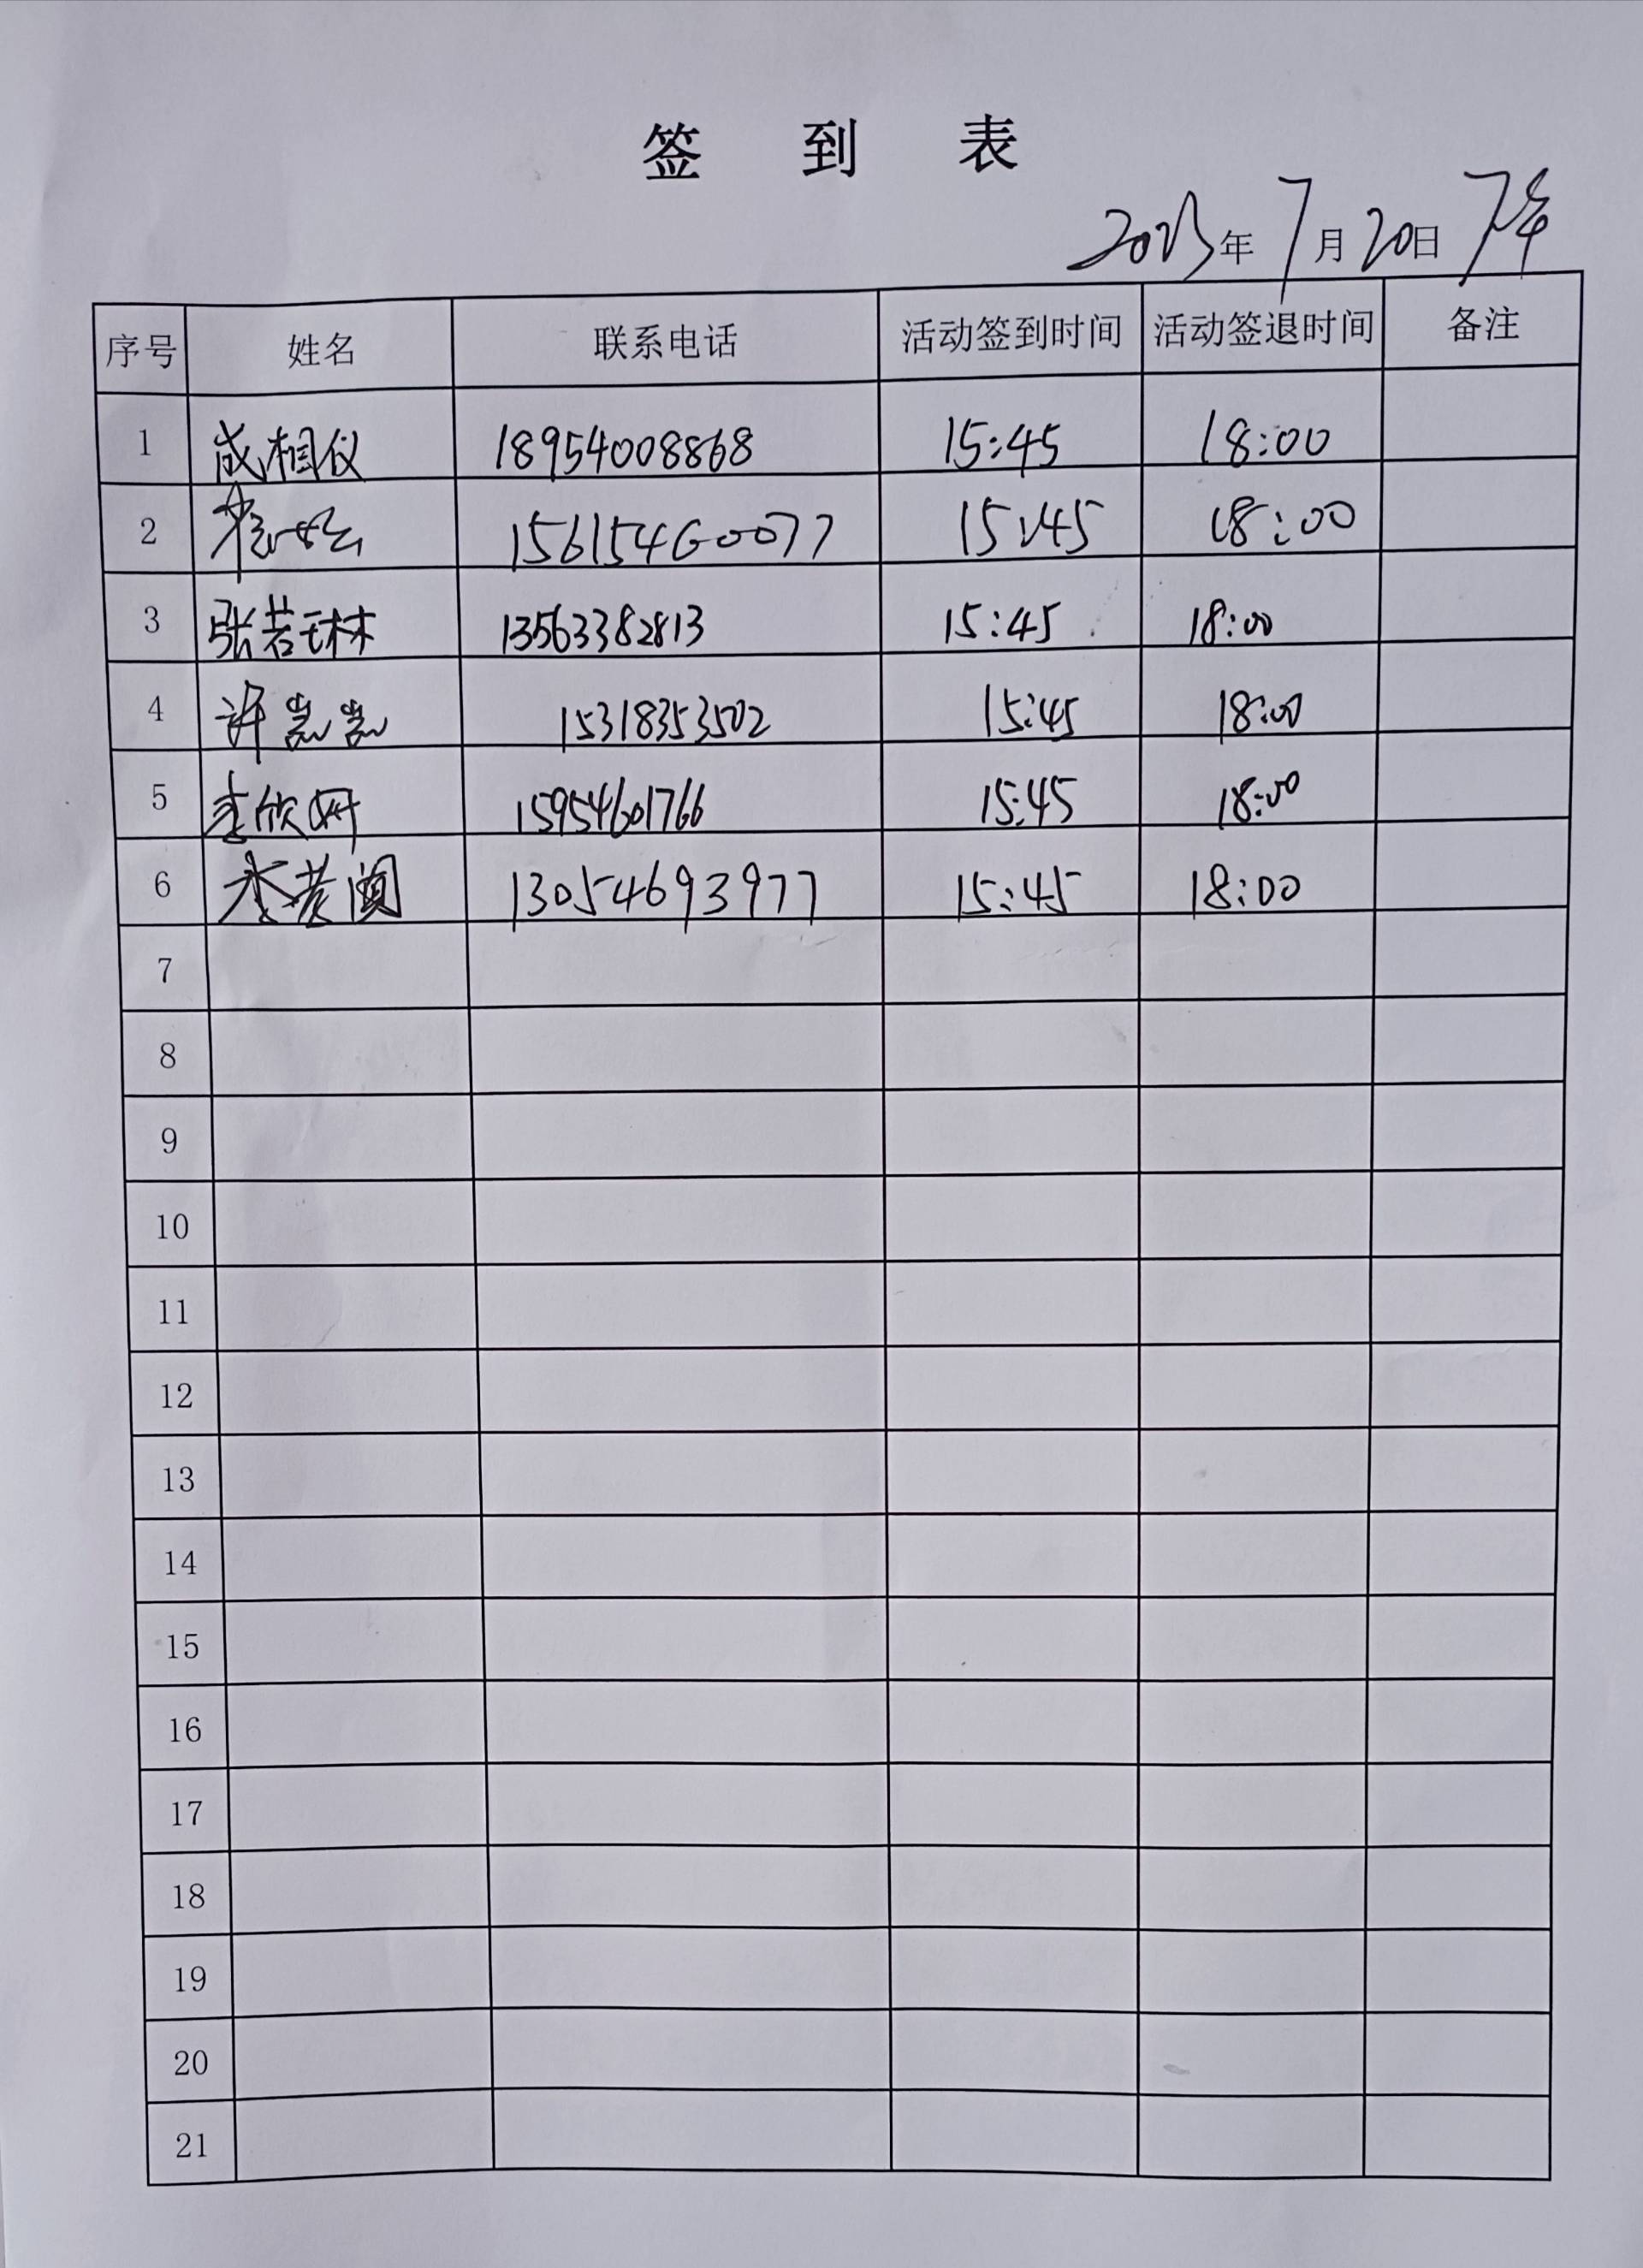 签 到 表
2023年7月20日 下午
序号 姓名 联系电话 活动签到时间 活动签退时间 备注
1 成相仪 18954008868 15:45 18:00
2 15615460077 15:45 18:00
3 张若琳 13563382813 15:45 18:00
4 许凯凯 15318353502 15:45 18:00
5 李欣妍 15954601766 15:45 18:00
6 李若 13054693977 15:45 18:00
7
8
9
10
11
12
13
14
15
16
17
18
19
20
21